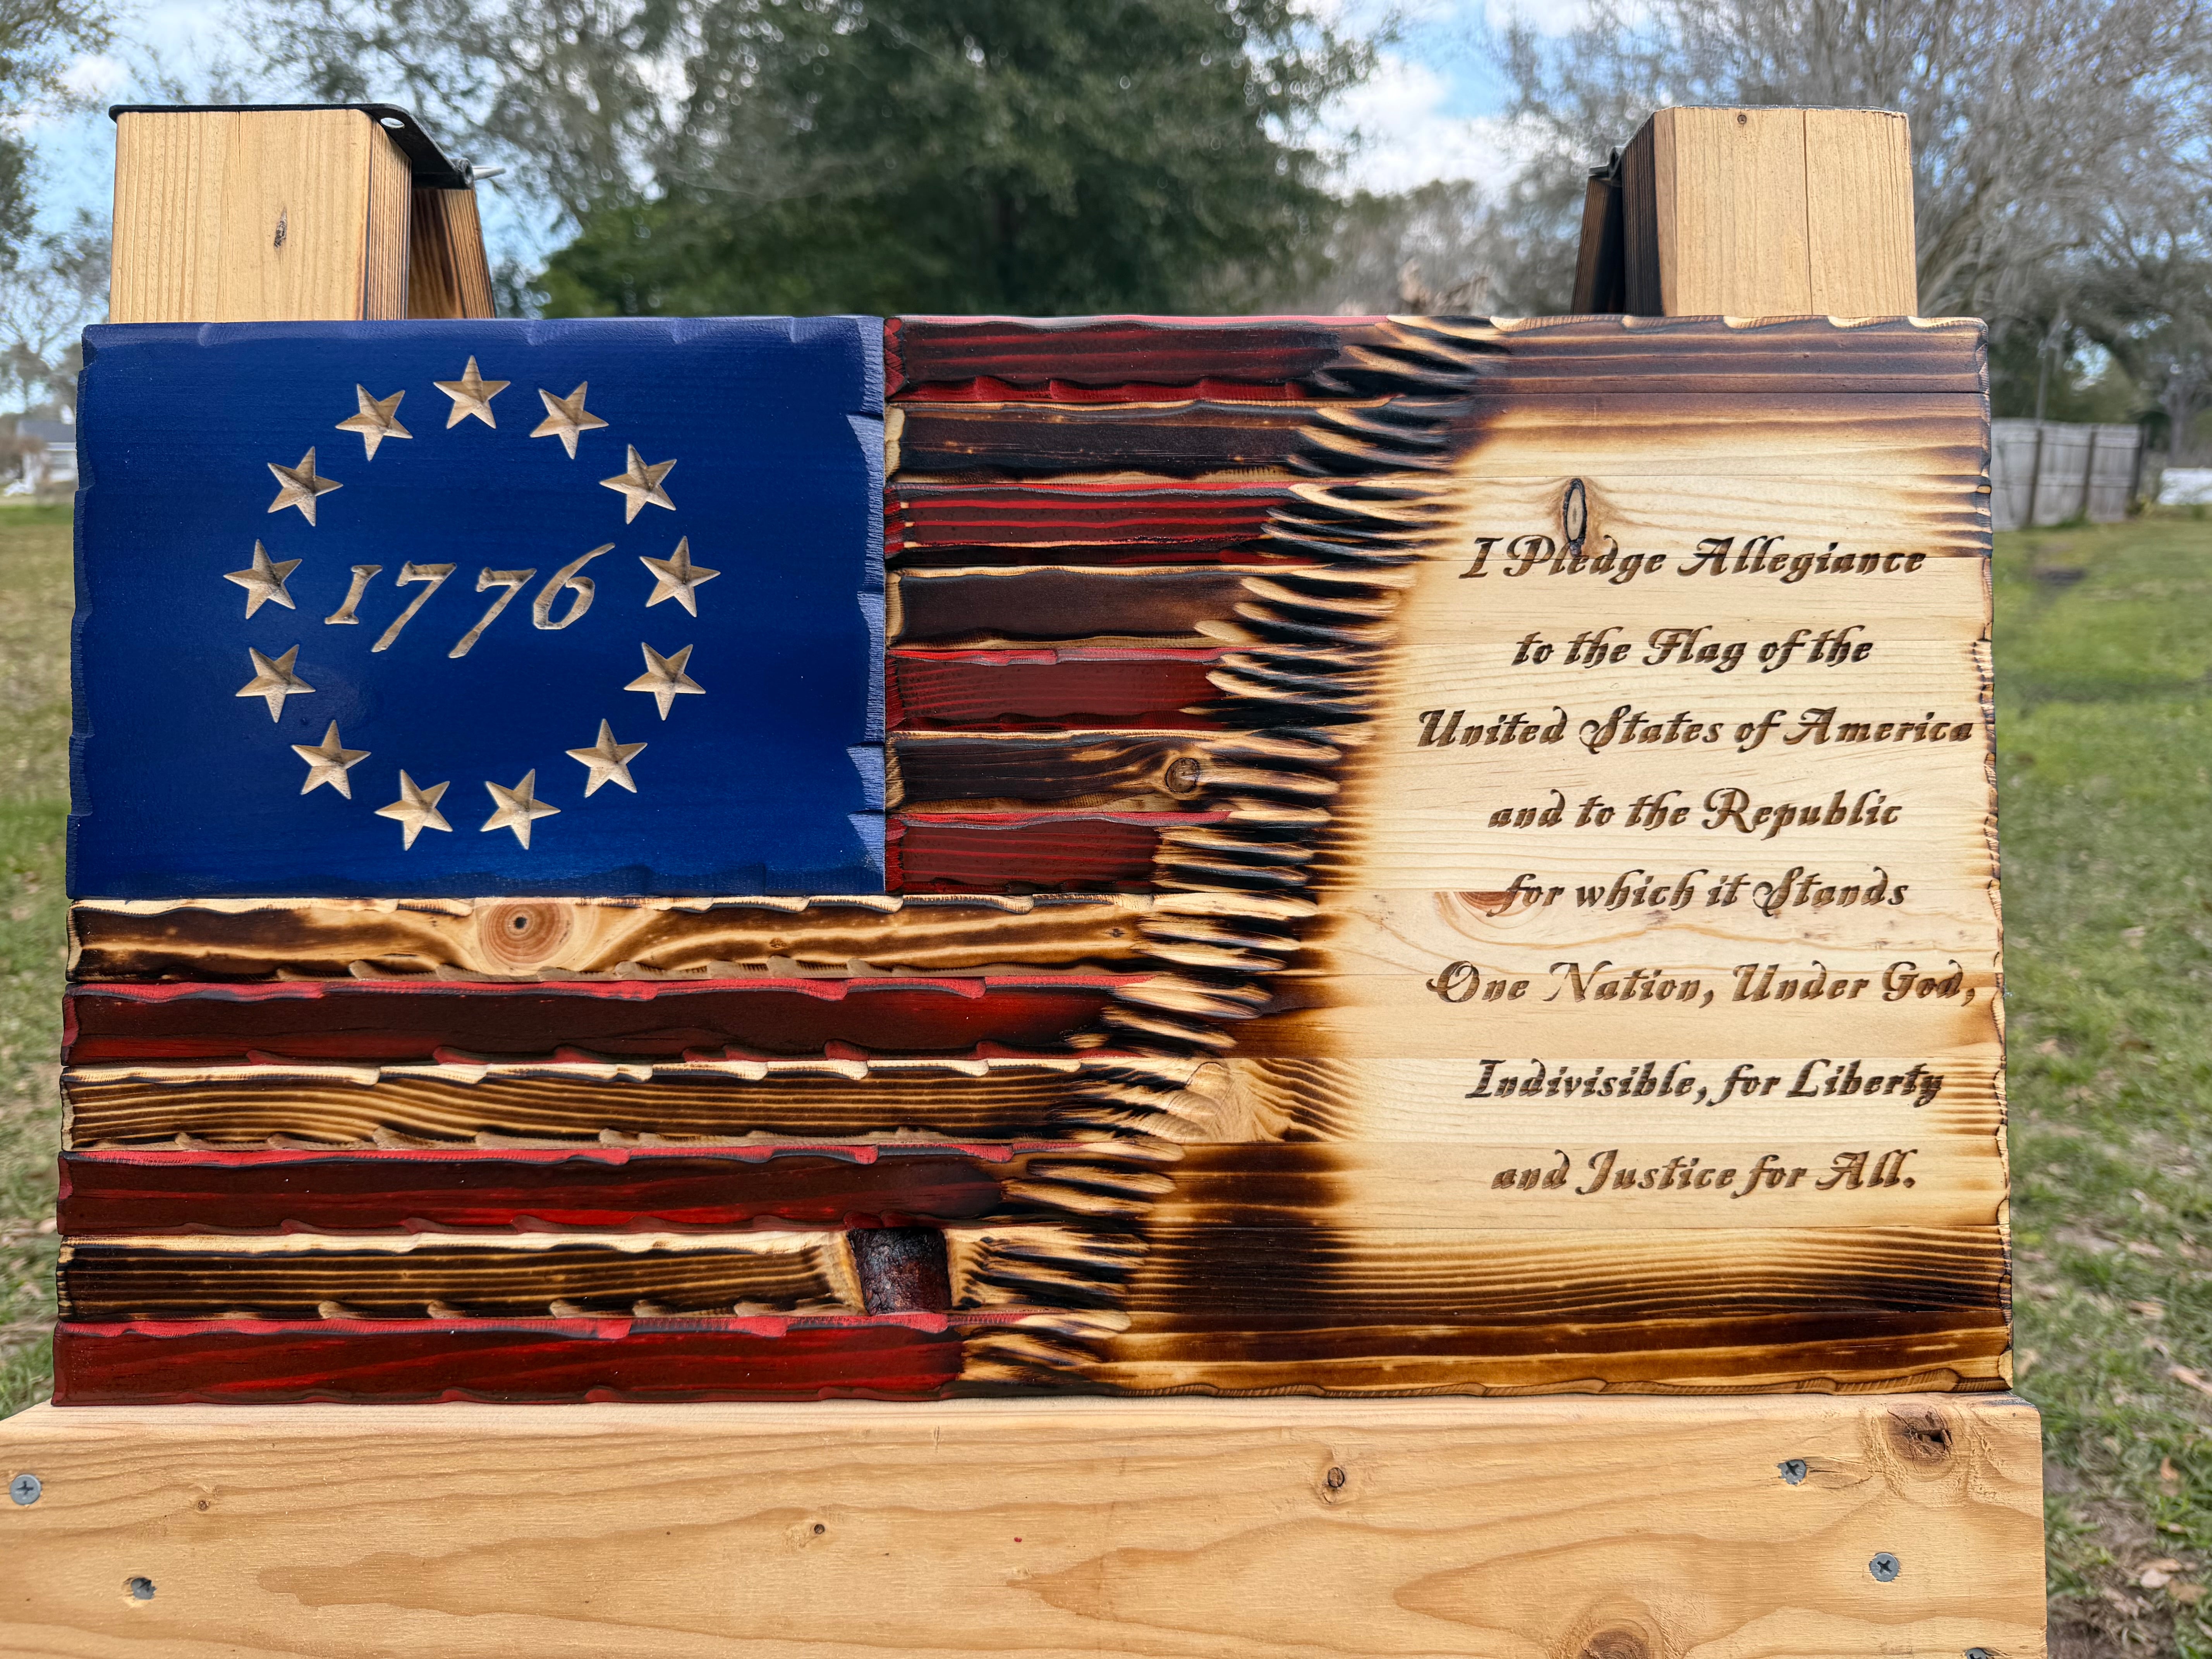 1776
I Pledge Allegiance
to the Flag of the
United States of America
and to the Republic
for which it Stands
One Nation, Under God,
Indivisible, for Liberty
and Justice for All.